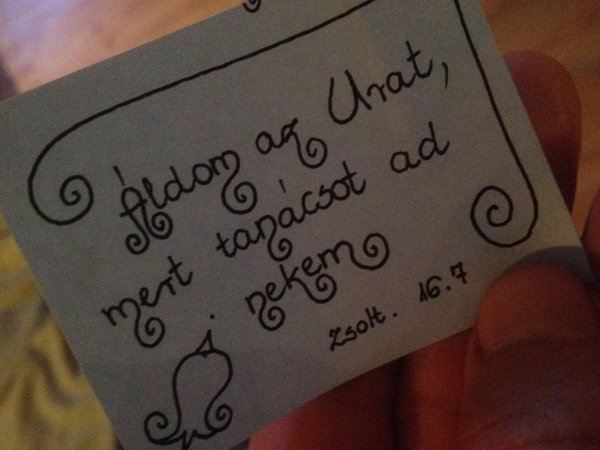 Áldom az Urat,
mert tanácsot ad
nekem
Zsolt. 16.7